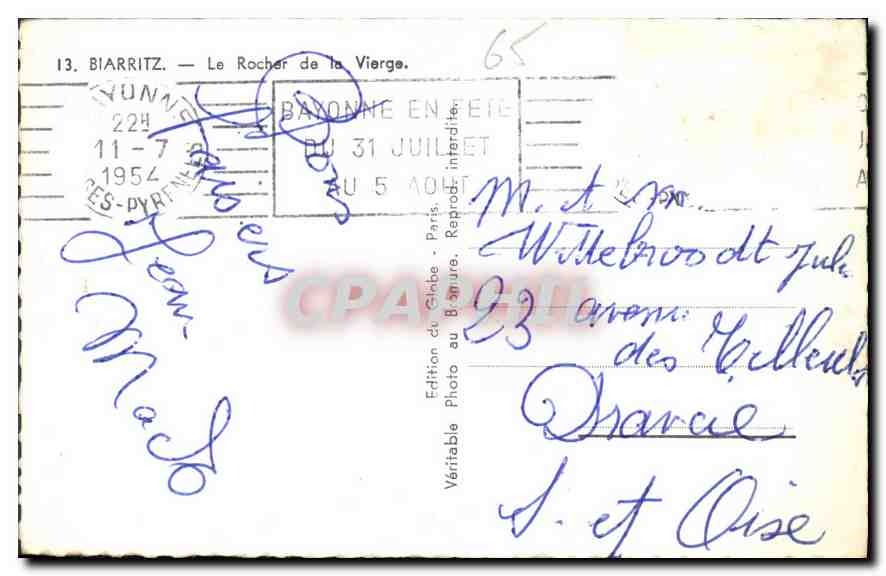 65
13. BIARRITZ. — Le Rocher de la Vierge.
BAYONNE
22H
11-7
1954
SES-PYRENEES
BAYONNE EN FETE
DU 31 JUILLET
AU 5 AOUT
Bons
Baisers
Jean
Edition du Globe - Paris.
Véritable Photo au Bromure. Reprod. interdite.
M. et Mme
Wittebroodt Jul
23 avenue
des Tilleuls
Draveil
S. et Oise
CPARAMA